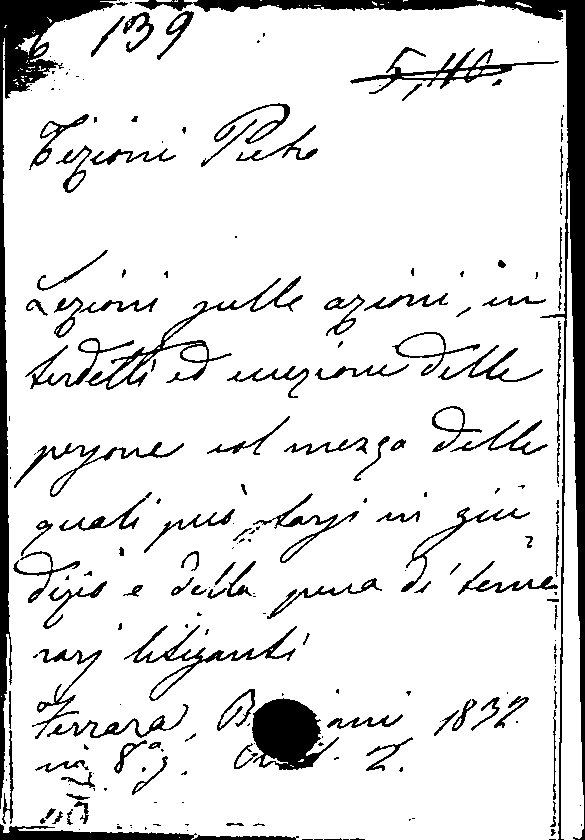 139
5,110.
Tizioni Pietro
Lezioni sulle azioni, in
terdetti ed enezione delle
persone col mezzo delle
quali può starsi in giu
dizio e della pena de' teme
rarj litiganti
Ferrara, 1832
in 8.° 2.